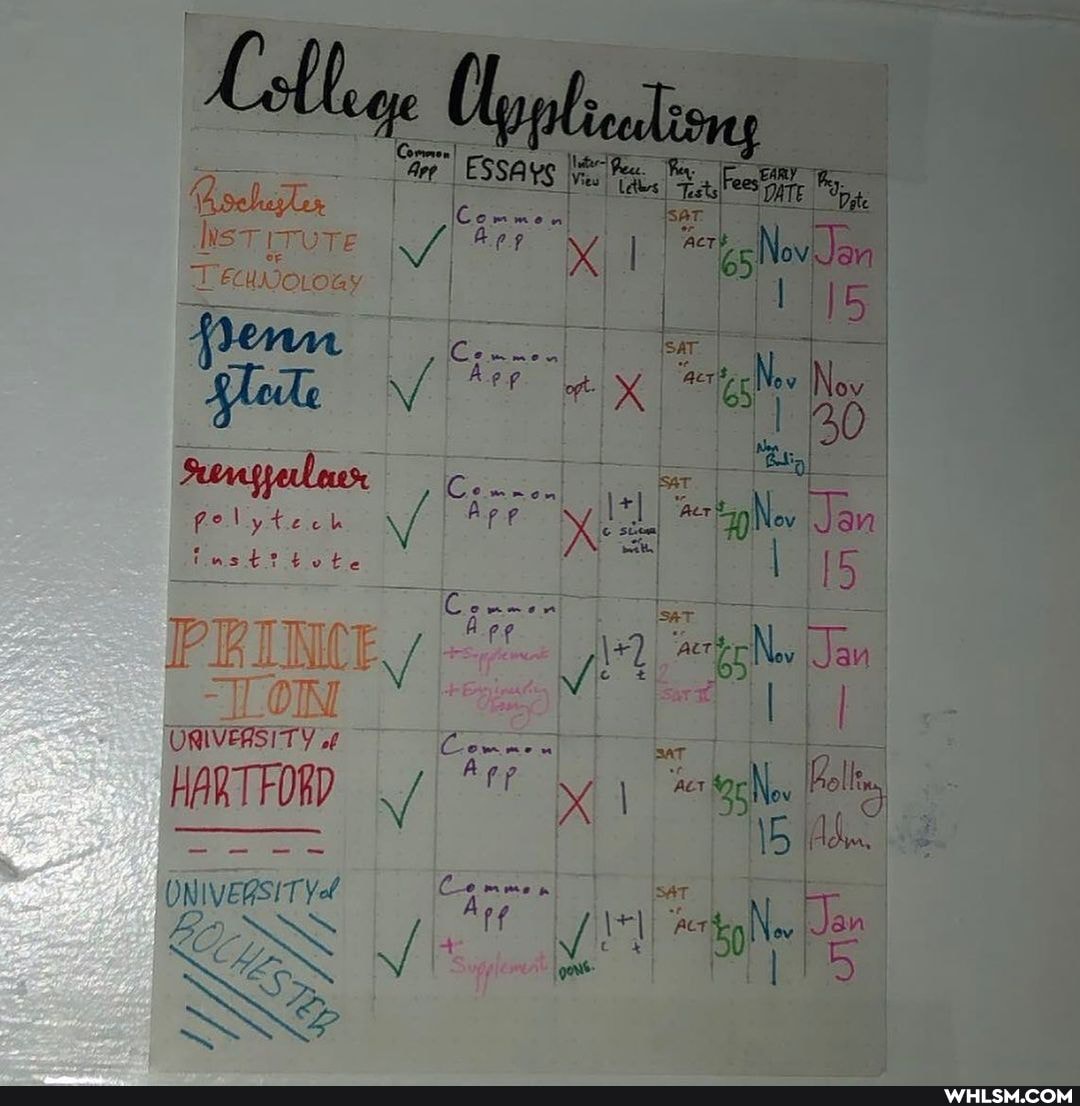 College Applications
Common App ESSAYS Inter-View Rec. Letters Req. Tests Fees EARLY DATE Reg. Date
Rochester
INSTITUTE
OF
TECHNOLOGY
✓
Common
App
X
1
SAT
or
ACT
$65
Nov
1
Jan
15
Penn
State
✓
Common
App
opt.
X
SAT
or
ACT
$65
Nov
1
Non
Nov
30
rensselaer
polytech
institute
✓
Common
App
X
1+1
c science
or
math
SAT
or
ACT
$70
Nov
1
Jan
15
PRINCE
-TON
✓
Common
App
+Supplement
+Engineering
Essay
✓
1+2
c t
SAT
or
ACT
2
SAT II
$65
Nov
1
Jan
1
UNIVERSITY of
HARTFORD
✓
Common
App
X
1
SAT
or
ACT
$35
Nov
15
Rolling
Adm.
UNIVERSITY of
ROCHESTER
✓
Common
App
+
Supplement
✓
DONE.
1+1
c t
SAT
or
ACT
$50
Nov
1
Jan
5
WHLSM.COM